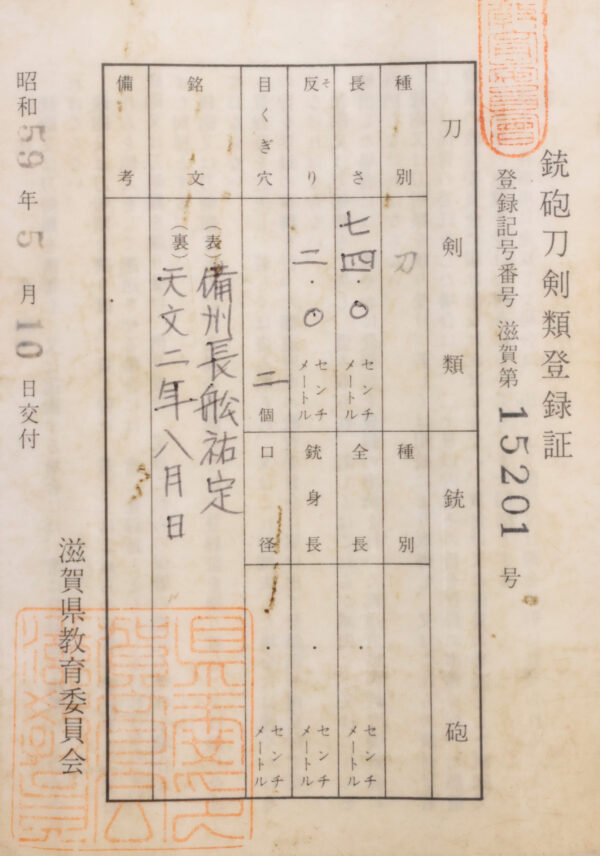 銃砲刀剣類登録証
登録記号番号 滋賀第 15201 号
刀剣類
銃砲
種別
刀
種別
長さ
七四.〇 センチメートル
全長
. センチメートル
反り
そ
二.〇 センチメートル
銃身長
. センチメートル
目くぎ穴
二個
口径
. センチメートル
銘文
(表)備州長舩祐定
(裏)天文二年八月日
備考
昭和59年5月10日交付
滋賀県教育委員会